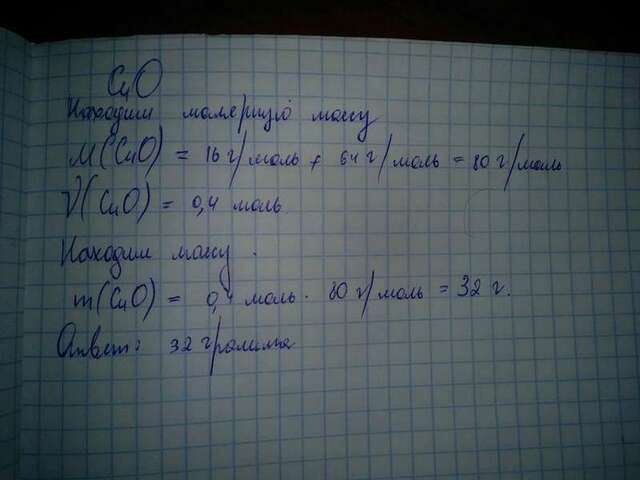 CuO
Находим молярную массу
M(CuO) = 16 г/моль + 64 г/моль = 80 г/моль
ν(CuO) = 0,4 моль
Находим массу.
m(CuO) = 0,4 моль · 80 г/моль = 32 г.
Ответ: 32 грамма